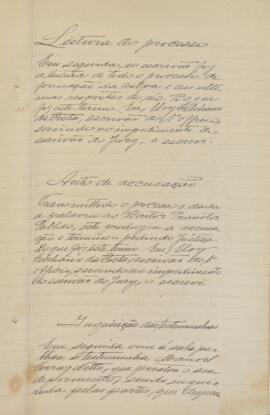 Leitura do processo
Em seguida, eu escrivão fiz
a leitura de todo o processo de
formação da culpa e das ulti
mas respostas do réo. Do que
fiz este termo. Eu,
da Costa, escrivão do 1º officio,
servindo no impedimento do
escrivão do Jury, o escrevi.
Acto de accusação
Transmittido o processo e dada
a palavra ao Doutor Promotor
Publico, este produzio a accusa
ção e terminou pedindo justiça.
Do que fiz este termo. Eu,
da Costa, escrivão do 1º
officio, servindo no impedimento
do escrivão do Jury, o escrevi
Inquirição das testemunhas
Em seguida veio á sala pu
blica a testemunha Manoel
Netto, que prestou o seu
depoimento, sendo inqueri
rida pelas partes, que